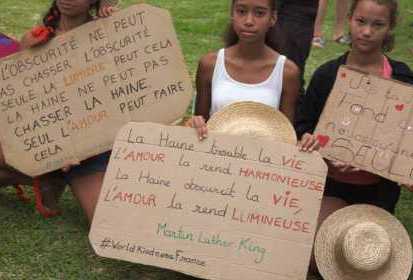 L'OBSCURITÉ NE PEUT
PAS CHASSER L'OBSCURITÉ
SEULE LA LUMIÈRE PEUT CELA
LA HAINE NE PEUT PAS
CHASSER LA HAINE,
SEUL L'AMOUR PEUT FAIRE
CELA
La Haine trouble la VIE
L'AMOUR la rend HARMONIEUSE
La Haine obscurcit la VIE,
L'AMOUR la rend LUMINEUSE
Martin Luther King
#WorldKindnessFrance
tu
rend